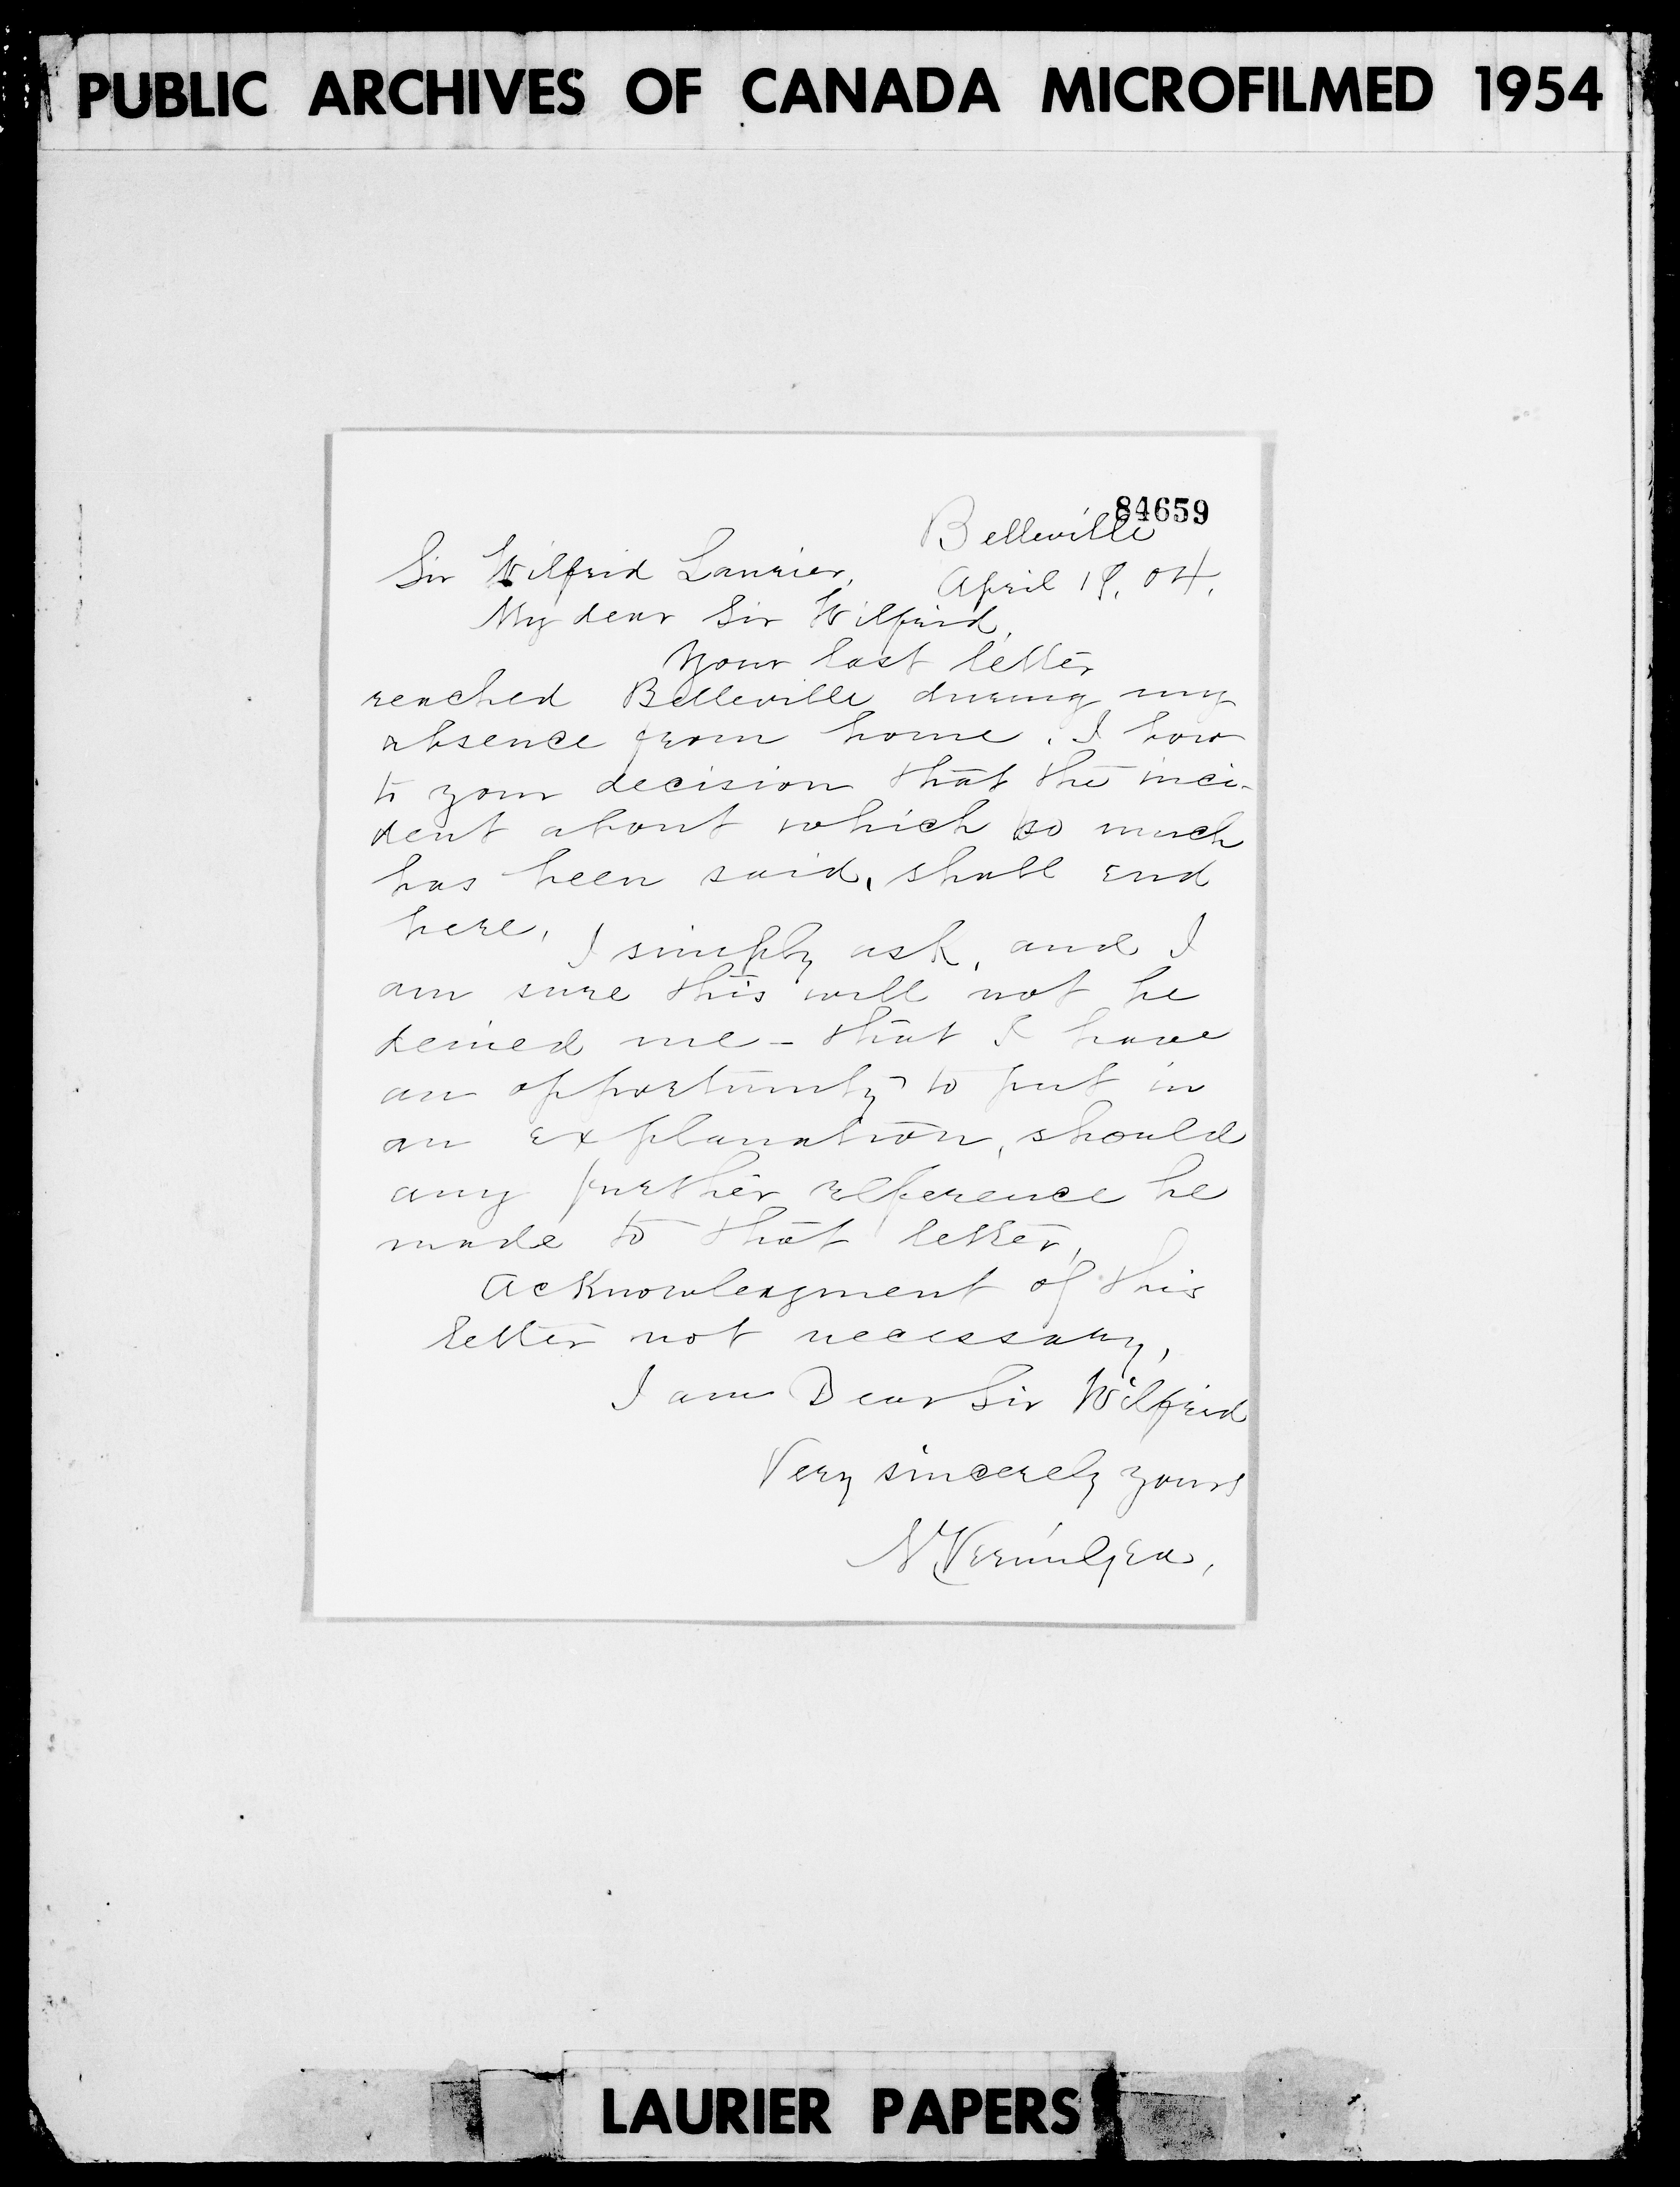 PUBLIC ARCHIVES OF CANADA MICROFILMED 1954
84659
Belleville
Sir Wilfrid Laurier,
April 19, 04.
My dear Sir Wilfrid,
Your last letter
reached Belleville during my
absence from home. I bow
to your decision that the inci-
dent about which so much
has been said, shall end
here.
I simply ask, and I
am sure this will not be
denied me - that I have
an opportunity to put in
an explanation, should
any further reference be
made to that letter,
Acknowledgment of this
letter not necessary,
I am Dear Sir Wilfrid
Very sincerely yours
N Vermilyea,
LAURIER PAPERS